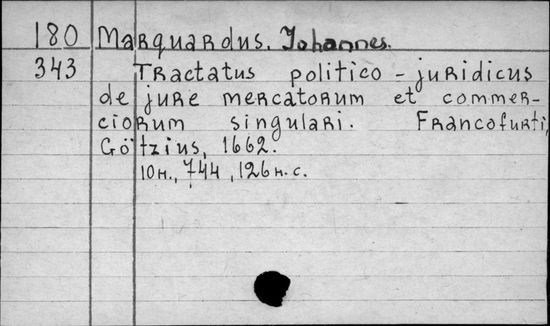 180 Marquardus, Johannes.
343 Tractatus politico-juridicus
de jure mercatorum et commer-
ciorum singulari. Francofurti,
Götzius, 1662.
10н., 744, 126н.с.